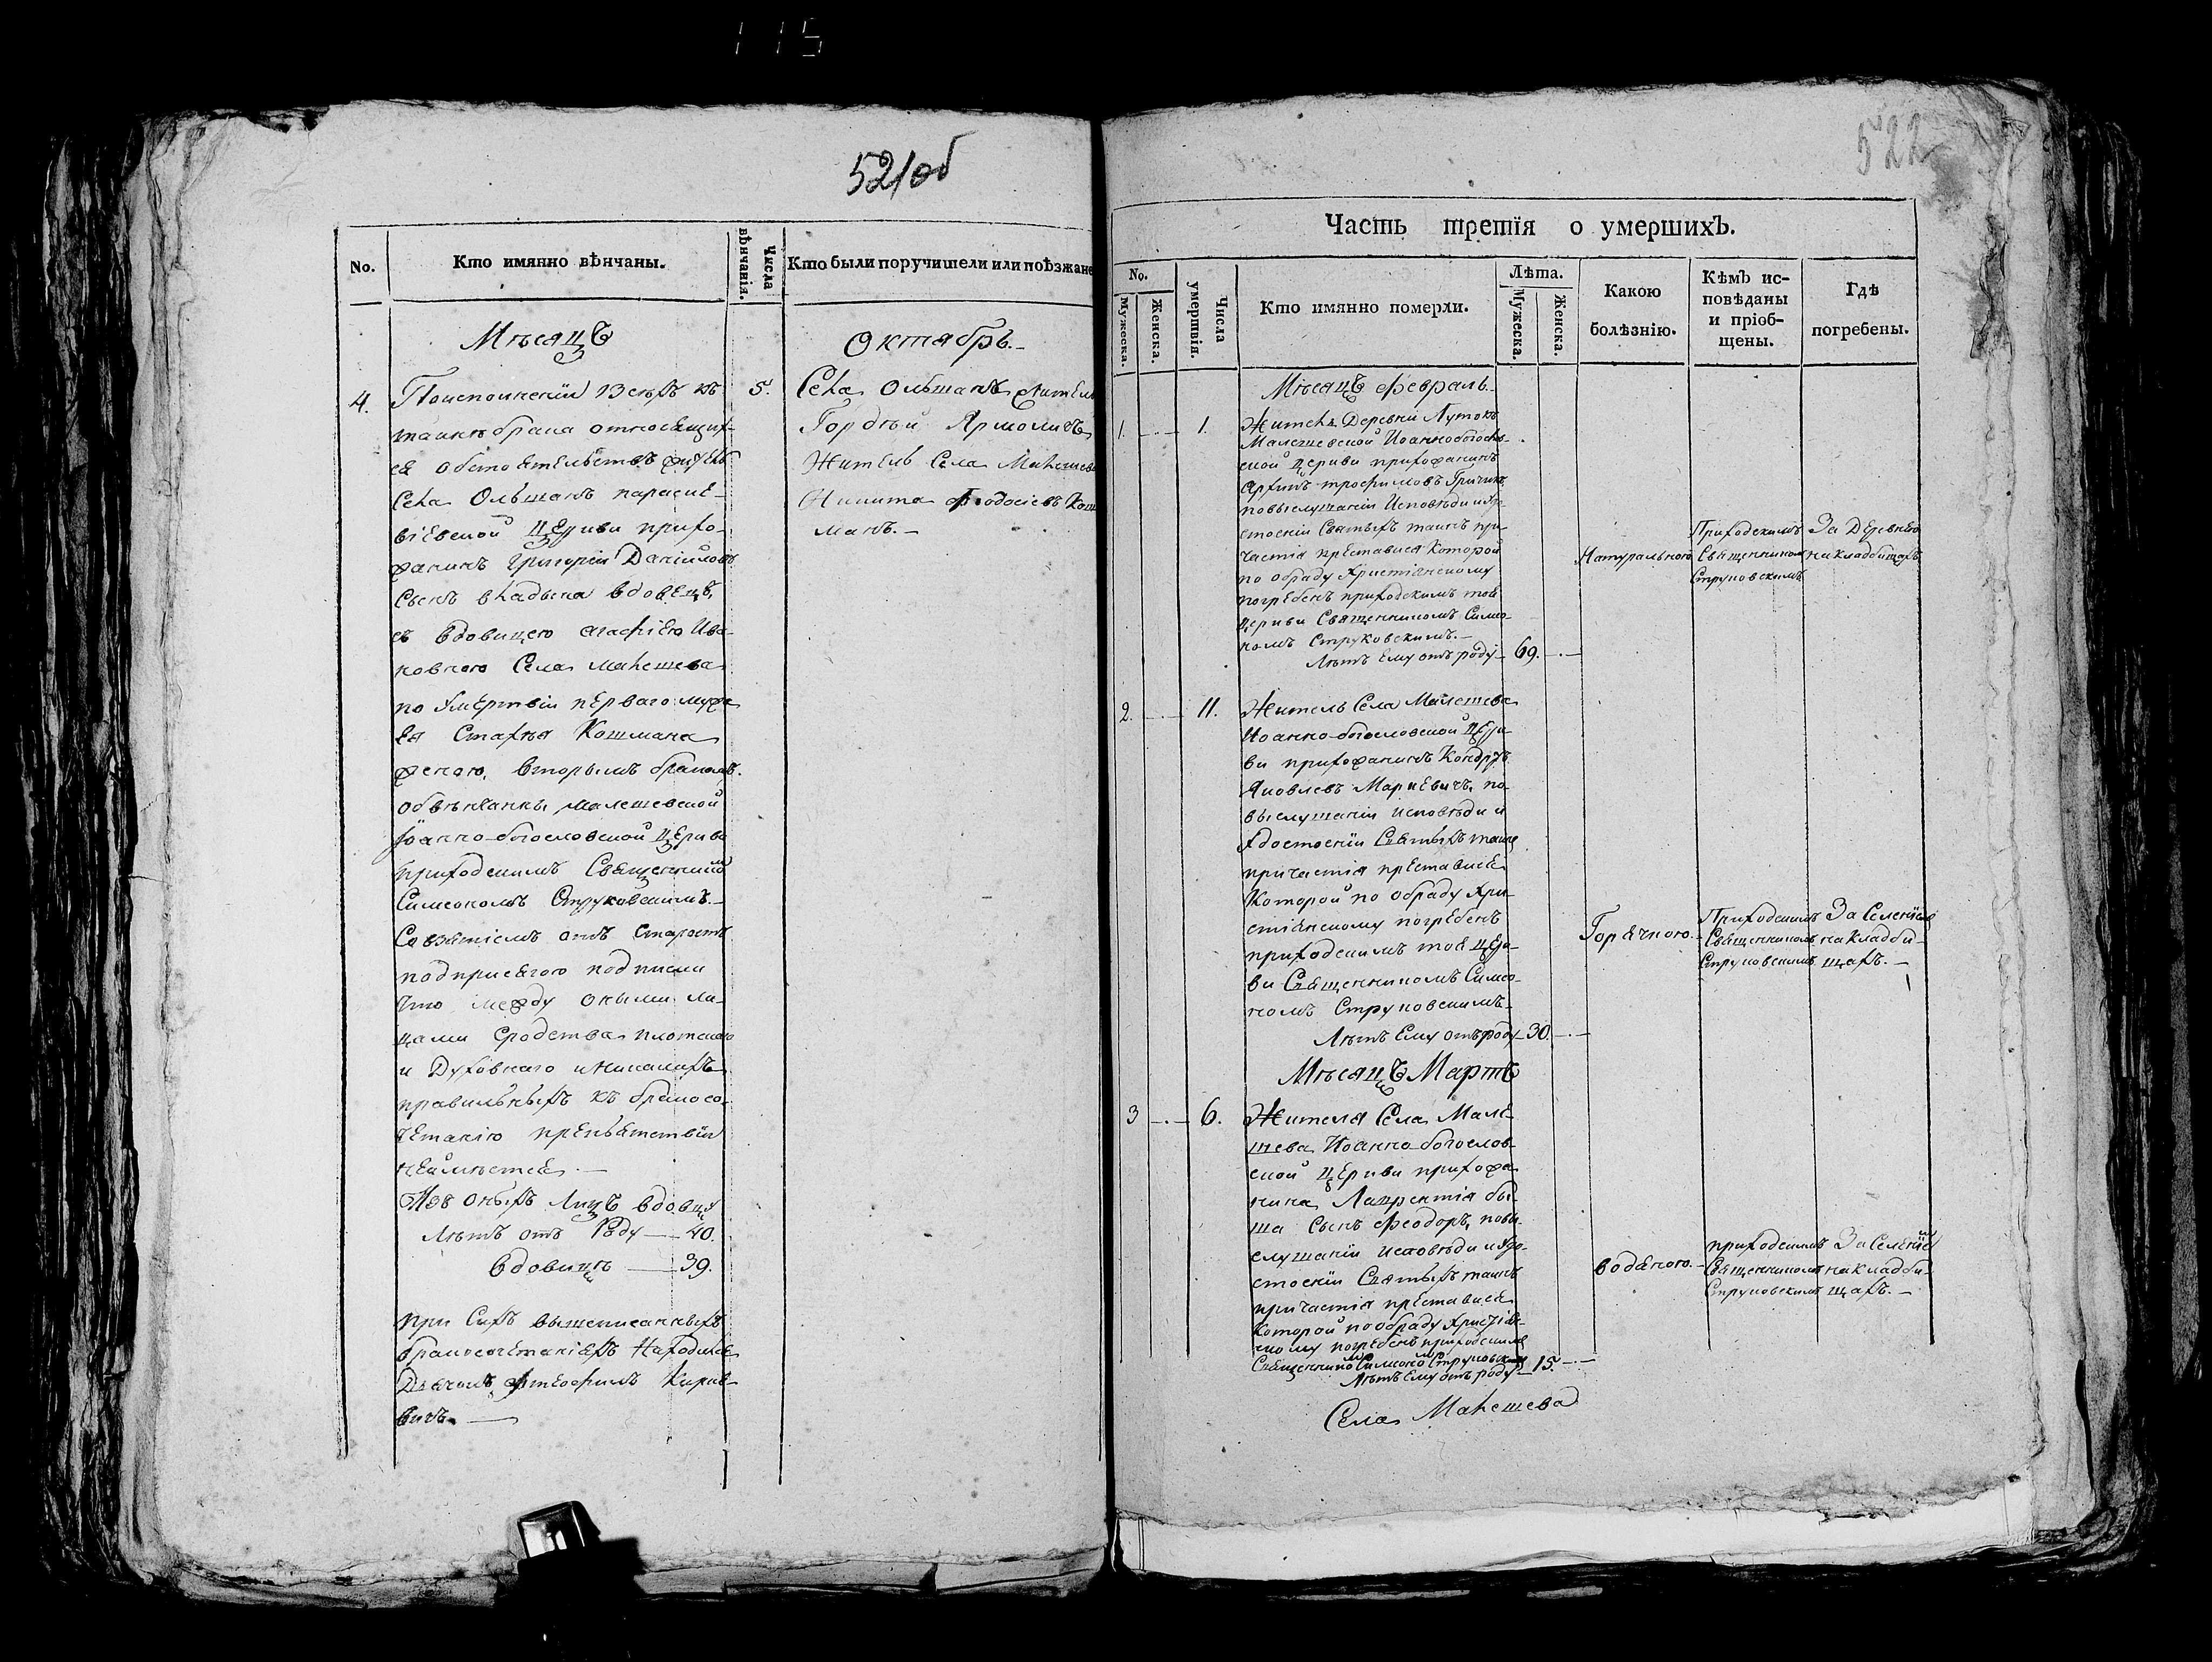 115
521об
No.
Кто имянно вѣнчаны.
Числа вѣнчанія.
Кто были поручишели или поѣзжане
Мѣсяцъ
Октябрь.
4.
По исполненіи всѣхъ къ
таинѣ брака относящих-
ся обстоятельствъ житель
Села Ольшанъ параске-
віевской Церкви прихо-
жанинъ Григорій Даніиловъ
Сынъ Владыка вдовецъ,
съ вдовицею Агафіею Ива-
новною Села Малешева
по умертвіи перваго мужа
ея Стахѣя Кошмана
женою, вторымъ бракомъ.
обвѣнчаны, малешевской
Іоанно-богословской Церкви
приходскимъ Священником
Симеономъ Струковскимъ.
Со взятіемъ отъ Старостъ
подприсягою подписки
что между оными ли-
цами сродства плотскаго
и Духовнаго и никакихъ
правильныхъ къ бракосо-
четанію препятствій
неимѣется.
Изъ оныхъ Лицъ вдовцу
Лѣтъ отъ Роду 40.
вдовицѣ 39.
при Сихъ вышеписанныхъ
бракосочетаніяхъ Находился
Дьячокъ
5.
Села Ольшанъ Житель
Гордѣй Ярмоличъ
Житель Села Малешева
Никита Феодосіевъ Кош
манъ.
522
Часть третія о умершихъ.
No.
Мужеска.
Женска.
Числа умертвія.
Кто имянно померли.
Лѣта.
Мужеска.
Женска.
Какою болѣзнію.
Кѣмъ ис-
повѣданы
и пріоб-
щены.
Гдѣ
погребены.
Мѣсяцъ февраль.
1. 1.
Житель Деревни Лутокъ
Малешевской Иоаннобогосл-
ской церкви прихожанинъ
трофимовъ
по выслушаніи Исповѣди и Удо-
стоеніи Святыхъ таинъ при-
частія преставися Которой
по обряду Христіанскому
погребенъ приходскимъ тоя
церкви Священникомъ Симео-
номъ Струковскимъ.
Лѣтъ Ему отъ роду 69.
Натуральною
Приходскимъ
Священником
Струковскимъ
За Деревнею
на кладбищахъ
2. 11.
Житель Села Малешева
Иоанно-богословской Церк-
ви прихожанинъ Кондратъ
Яковлевъ Маркевичъ, по
выслушаніи исповѣди и
Удостоеніи Святыхъ таинъ
причастія преставися
Которой по обряду Хри-
стіанскому погребенъ
приходскимъ тоя Церк-
ви Священникомъ Симео-
номъ Струковскимъ.
Лѣтъ Ему отъ роду 30.
Горячкою.
Приходскимъ
Священником
Струковскимъ
За Селеніем
на Кладби-
щахъ.
Мѣсяцъ Мартъ
3 6.
Жителя Села Мале
шева Иоанно-богослов-
ской Церкви прихожа
нина Лаврентія
Сынъ Феодоръ, повы-
слушаніи исповѣди и Удо-
стоеніи Святыхъ таинъ
причастія преставися
Которой по обряду Христіан-
скому погребенъ приходскимъ
Священником Симеоном Струковским
Лѣтъ Ему отъ роду 15.
водяною.
приходскимъ
Священником
Струковским
За Селеніем
на Кладби-
щахъ.
Села Малешева